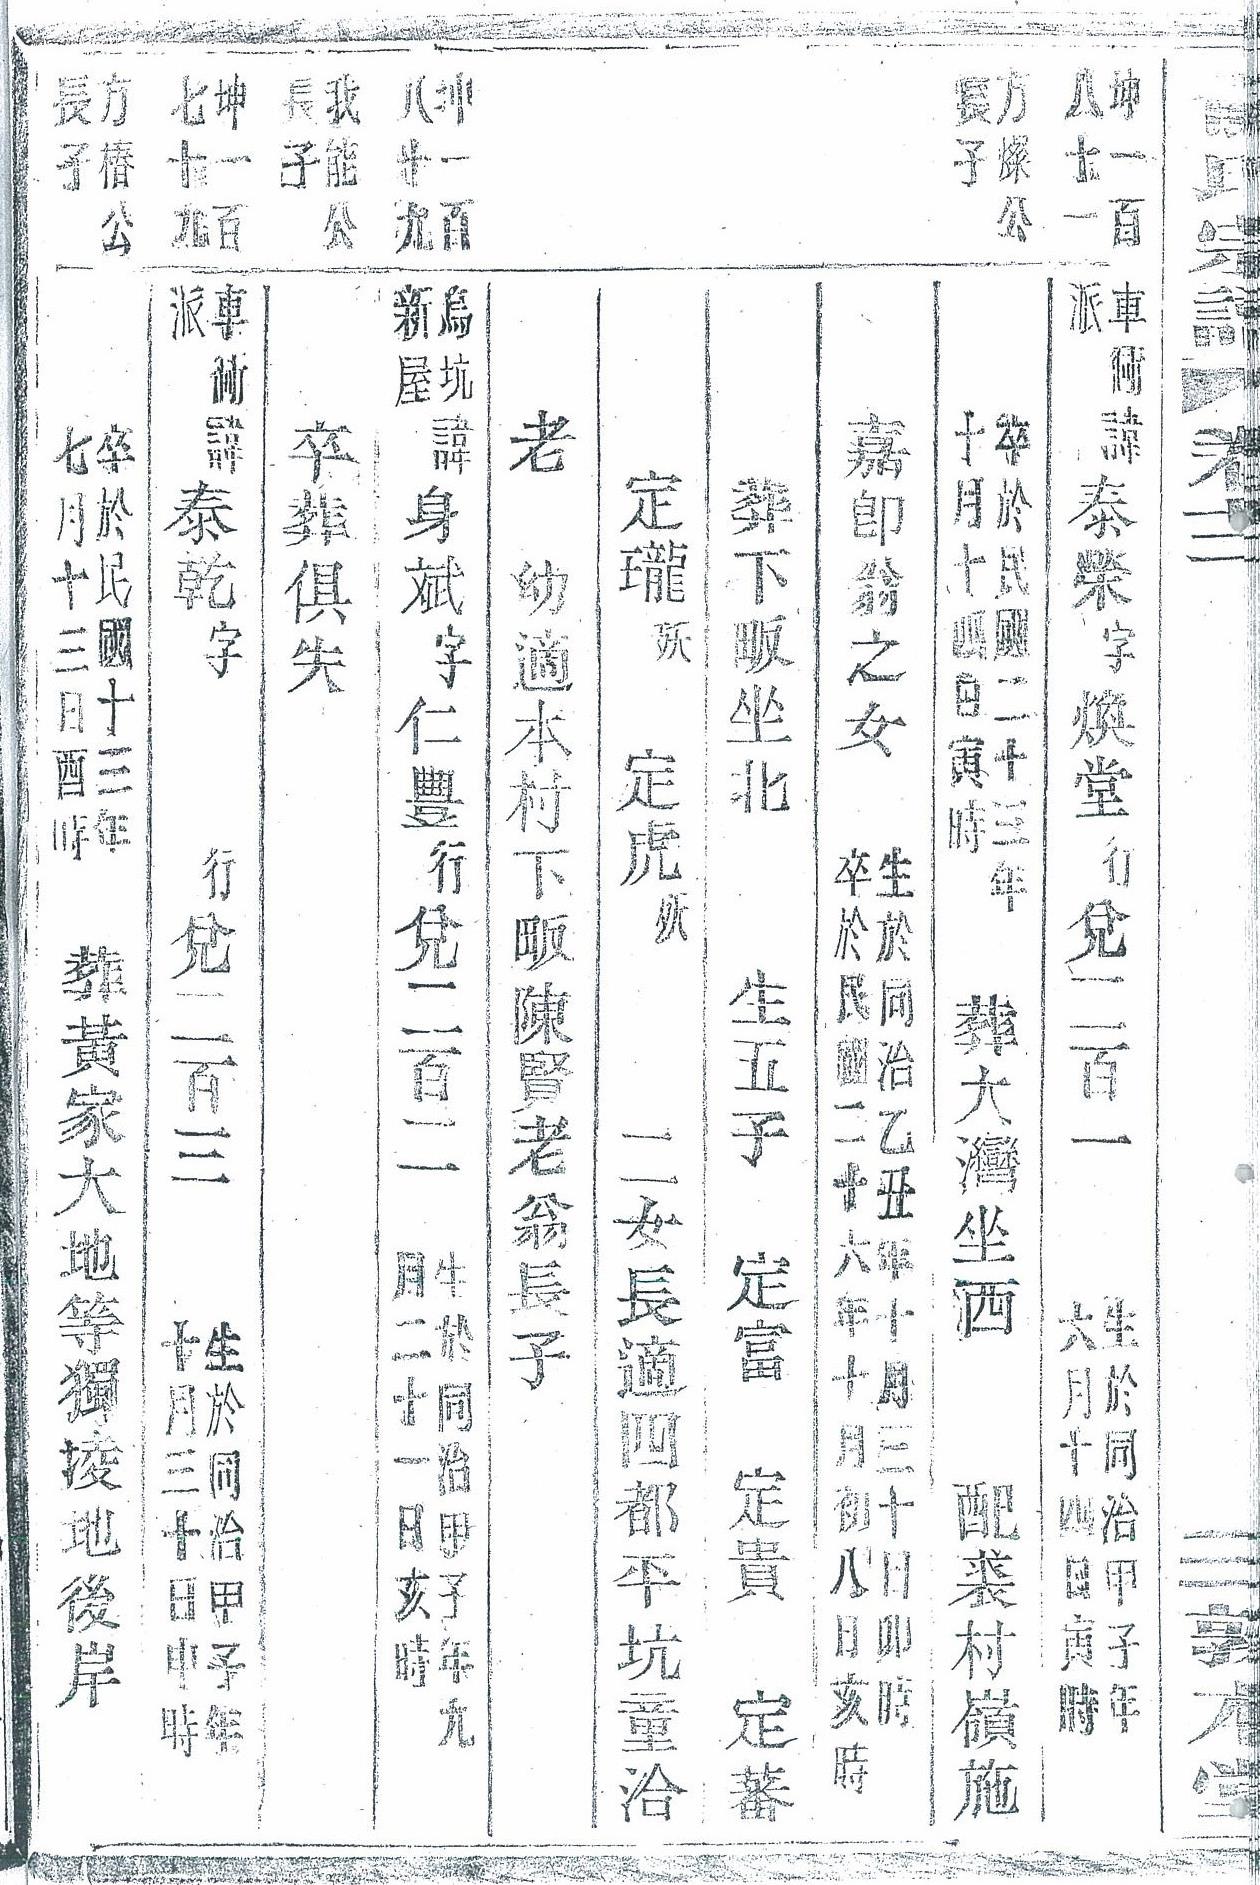 氏宗譜 卷二 三 敦本堂
坤一百
八十一
方燦公
長子
車衕
派
諱泰榮字煥堂行兌二百一
生於同治甲子年
六月十四日寅時
卒於民國二十三年
十月十四日寅時
葬大灣坐西 配裘村嶺施
嘉卽翁之女
生於同治乙丑年十月三十日卯時
卒於民國二十六年十月初八日亥時
葬下畈坐北 生五子 定富 定貴 定蕃
定瓏殀 定虎殀 二女長適四都平坑童洽
老 幼適本村下畈陳賢老翁長子
坤一百
八十九
我能公
長子
烏坑
新屋
諱身斌字仁豐行兌二百二
生於同治甲子年九
月二十一日亥時
卒葬俱失
坤一百
七十九
方椿公
長子
車衕
派
諱泰乾字 行兌二百三
生於同治甲子年
十月三十日申時
卒於民國十三年
七月十三日酉時
葬黃家大地等獨崚地後岸